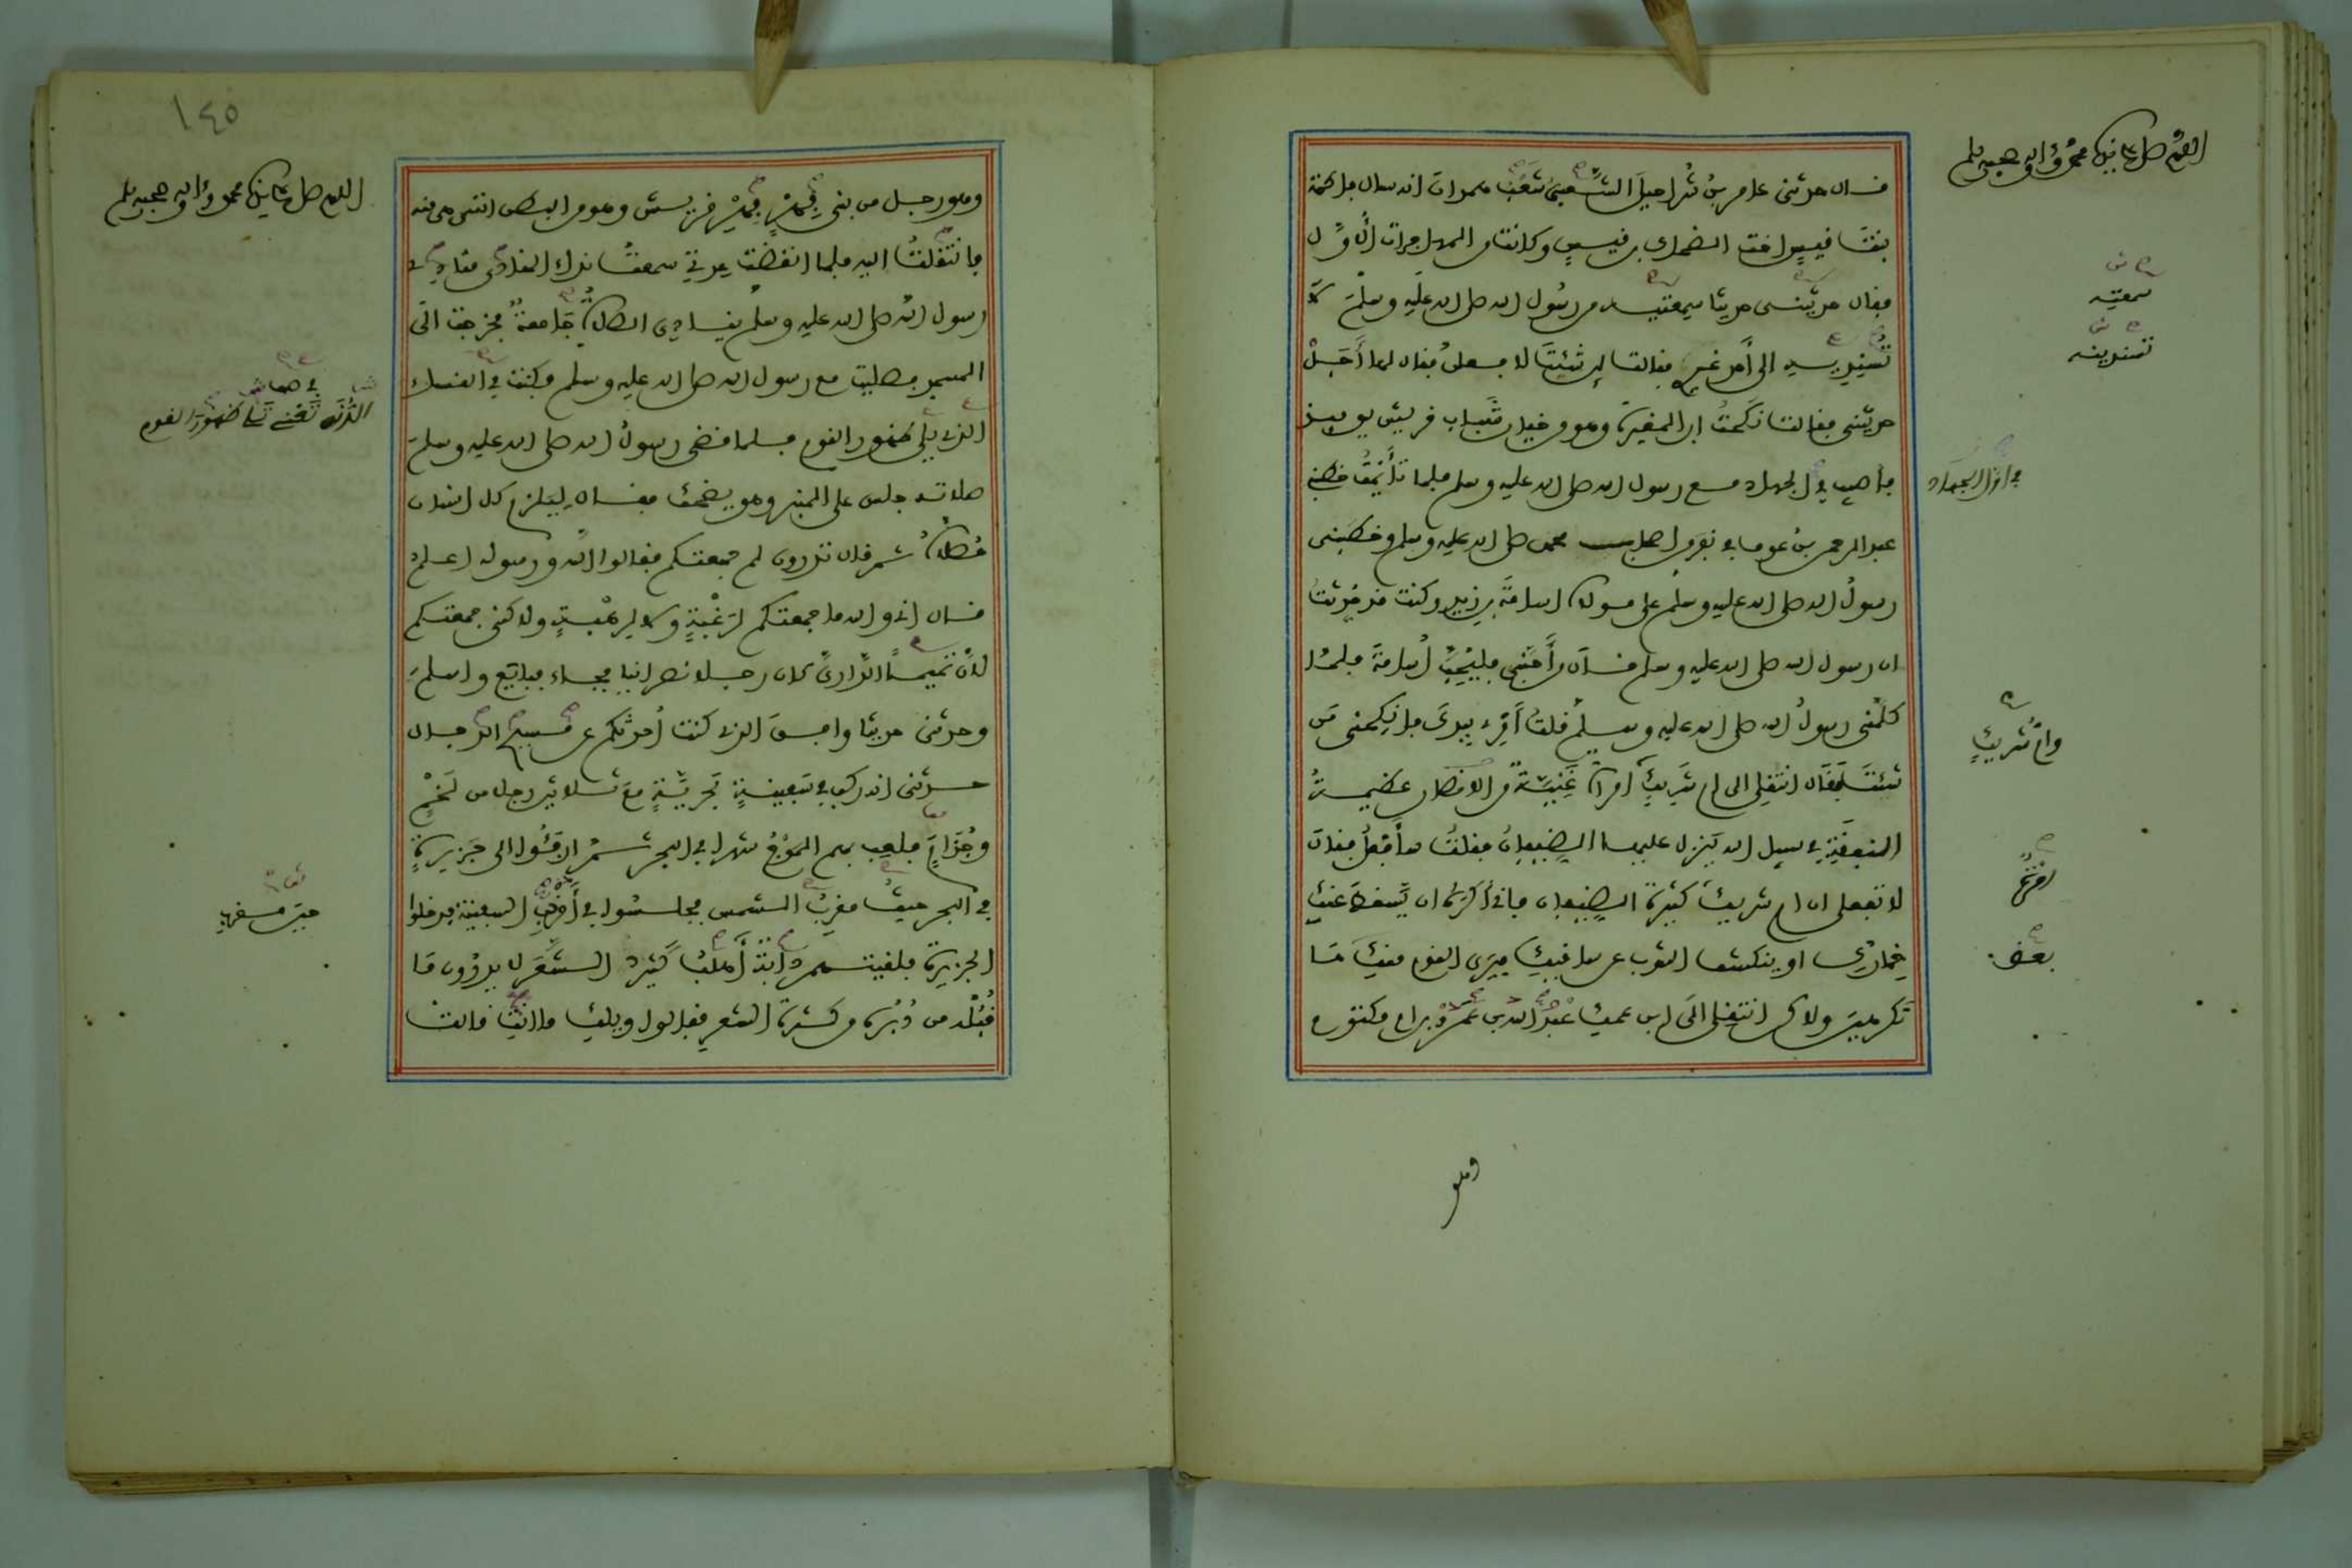 اللهم صل على نبينا محمد وآله وصحبه وسلم
قال حدثني عامر بن شراحيل الشعبي شعب همدان انه سال فاطمة
بنت قيس اخت الضحاك بن قيس وكانت من المهاجرات الأول
فقال حدثيني حديثا سمعتيه من رسول الله صلى الله عليه وسلم لا
تسنديه الى أحد غيره فقالت لين شئت لافعلن فقال لها أجل
حدثيني فقالت نكحت ابن المغيرة وهو من خيار شباب قريش يوميذ
فأصيب في اول الجهاد مع رسول الله صلى الله عليه وسلم فلما تأيمت خطبني
عبد الرحمن بن عوف في نفر من اصحاب محمد صلى الله عليه وسلم وخطبني
رسول الله صلى الله عليه وسلم على مولاه اسامة بن زيد وكنت قد حدثت
ان رسول الله صلى الله عليه وسلم قال من أحبني فليحب أسامة فلما
كلمني رسول الله صلى الله عليه وسلم قلت أمري بيدك فانكحني من
شئت فقال انتقلي الى ام شريك وام شريك امرأة غنية من الانصار عظيمة
النفقة في سبيل الله ينزل عليها الضيفان فقلت سأفعل فقال
لا تفعلي ان ام شريك كثيرة الضيفان فاني أكره ان يسقط عنك
خمارك او ينكشف الثوب عن ساقيك فيرى القوم منك بعض ما
تكرهين ولاكن انتقلي الى ابن عمك عبد الله بن عمرو بن ام مكتوم
سمعتيه
تسندينه
في اول الجهاد
وام شريك
بعض
وهو
١٤٥
اللهم صل على نبينا محمد وآله وصحبه وسلم
وهو رجل من بني فهر فهر قريش وهو من البطن التي هي منه
فانتقلت اليه فلما انقضت عدتي سمعت نداء المنادي منادي
رسول الله صلى الله عليه وسلم ينادي الصلاة جامعة فخرجت الى
المسجد فصليت مع رسول الله صلى الله عليه وسلم فكنت في النساء
الذي يلي ظهور القوم فلما قضى رسول الله صلى الله عليه وسلم
صلاته جلس على المنبر وهو يضحك فقال ليلزم كل انسان
مصلاه ثم قال تدرون لم جمعتكم فقالوا الله ورسوله اعلم
قال اني والله ما جمعتكم لرغبة ولا لرهبة ولاكني جمعتكم
لأن تميما الداري كان رجلا نصرانيا فجاء فبايع واسلم
وحدثني حديثا وافق الذي كنت أحدثكم عن مسيح الدجال
حدثني انه ركب في سفينة بحرية مع ثلاثين رجلا من لخم
وجذام فلعب بهم الموج شهرا في البحر ثم ارفئوا الى جزيرة
في البحر حيث مغرب الشمس فجلسوا في أقرب السفينة فدخلوا
الجزيرة فلقيتهم دابة أهلب كثير الشعر لا يدرون ما
قبله من دبره من كثرة الشعر فقالوا ويلك ما انت قالت
في صف النساء
التي تلي ظهور القوم
حين مغرب